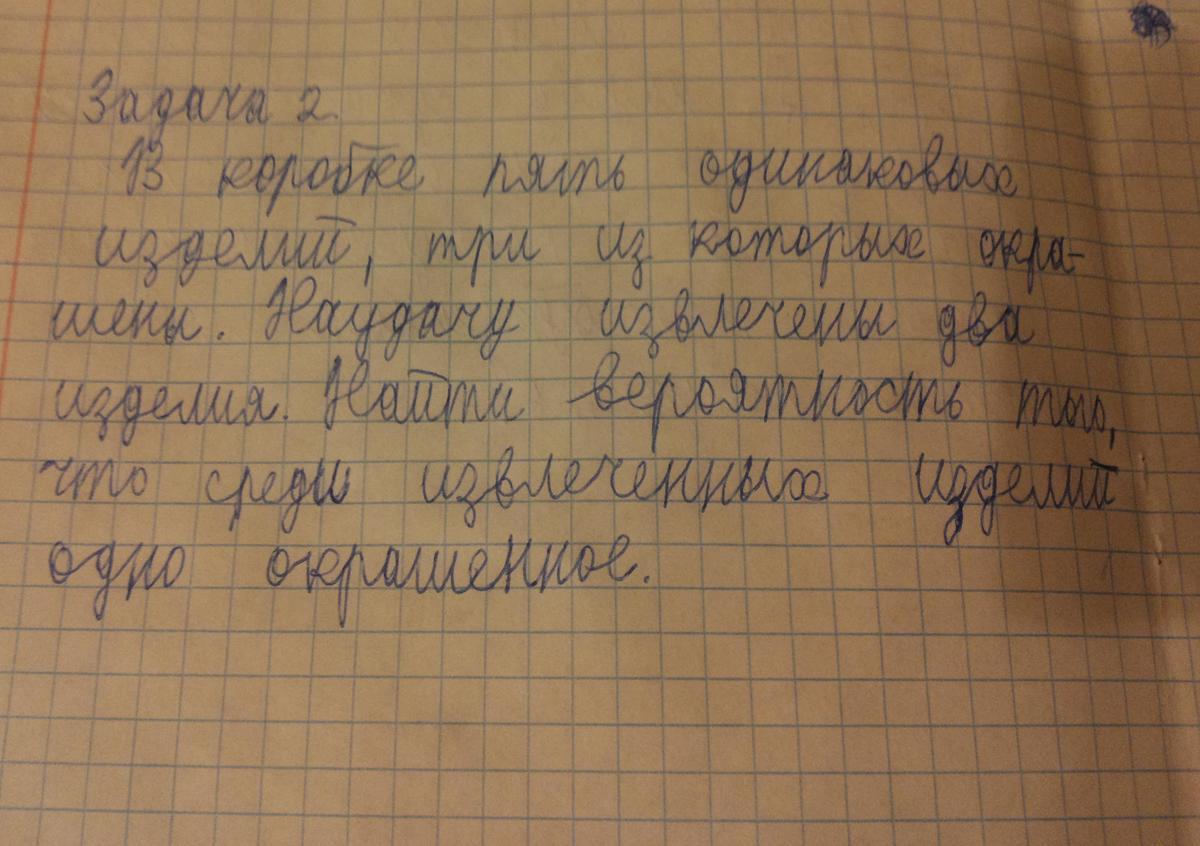 Задача 2.
В коробке пять одинаковых
изделий, три из которых окра-
шены. Наудачу извлечены два
изделия. Найти вероятность того,
что среди извлеченных изделий
одно окрашенное.